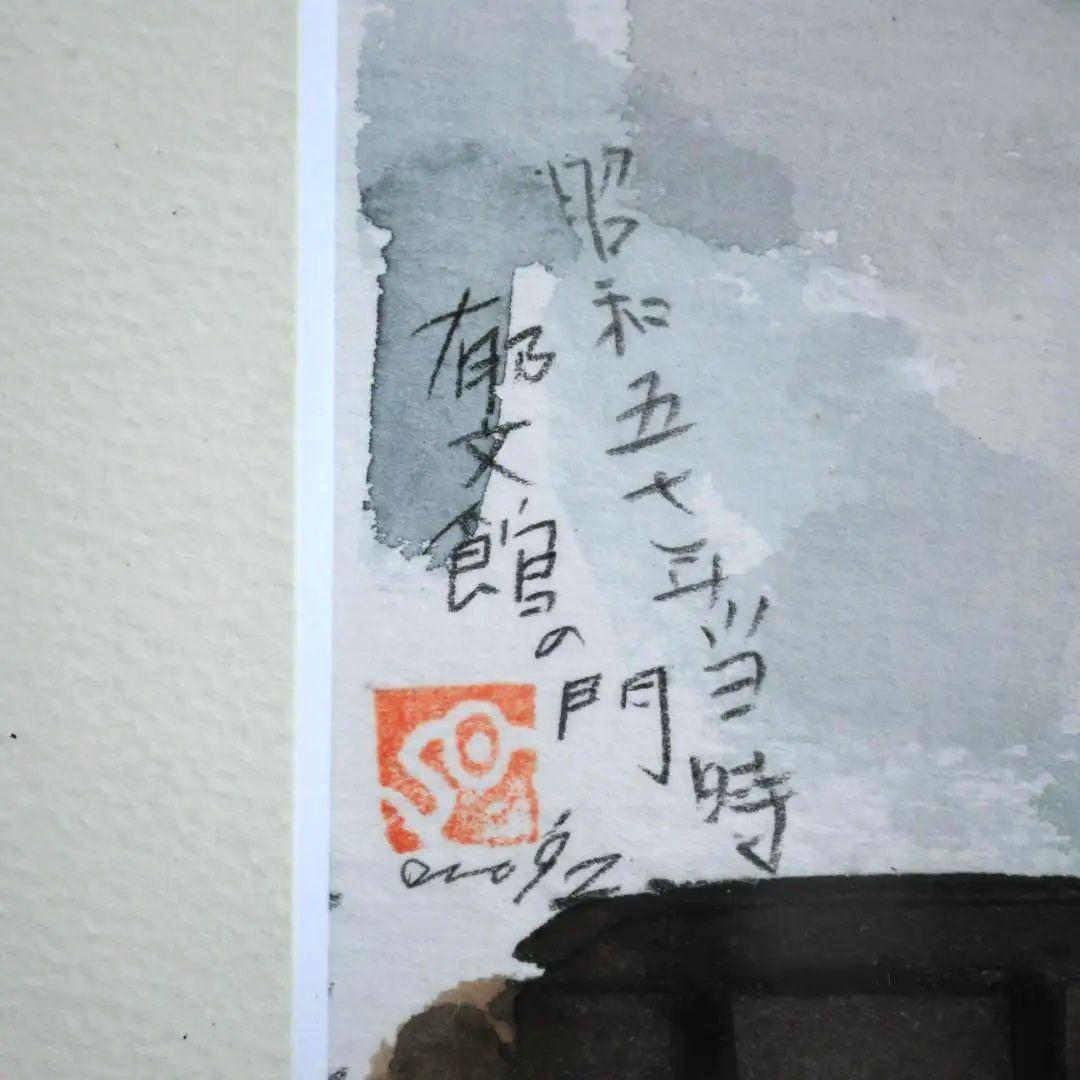 昭和五十年当時
郁文館の門